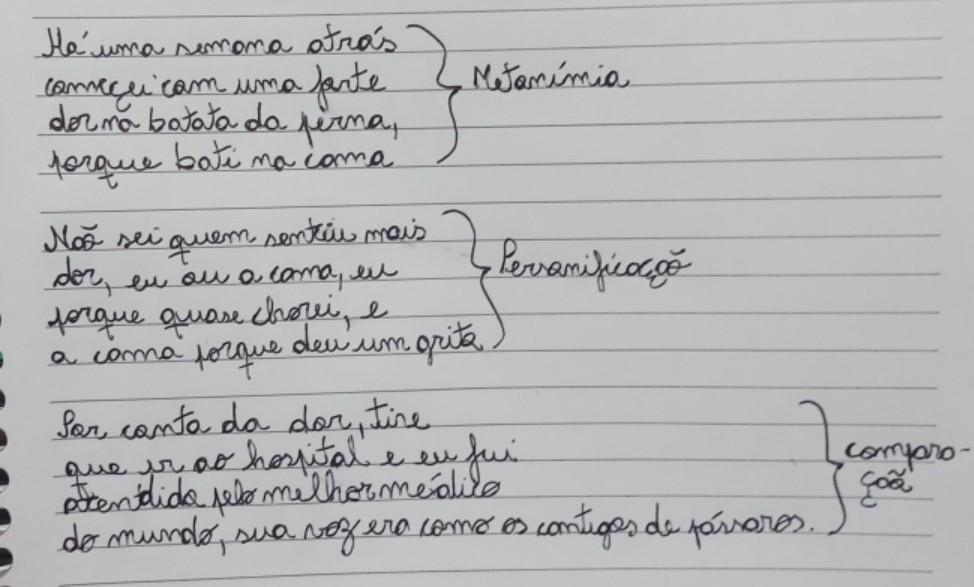 Há uma semana atrás
começei com uma forte
dor na batata da perna,
porque bati na cama
Metonímia
Não sei quem sentiu mais
dor, eu ou a cama, eu
porque quase chorei, e
a cama porque deu um grito
Personificação
Por conta da dor, tive
que ir ao hospital e eu fui
atendida pelo melhor médico
do mundo, sua voz era como os cantigos de pássaros.
compara-
ção